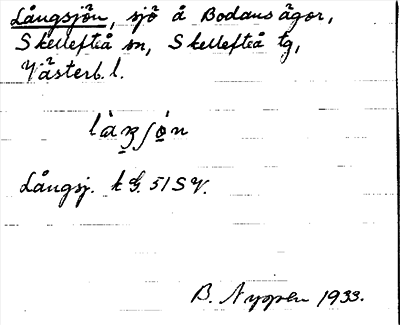 Långsjön, sjö å Bodans ägor,
Skellefteå sn, Skellefteå tg,
Västerb. l.
Långsj. k G. 51 SV.
B. Nyppen 1933.